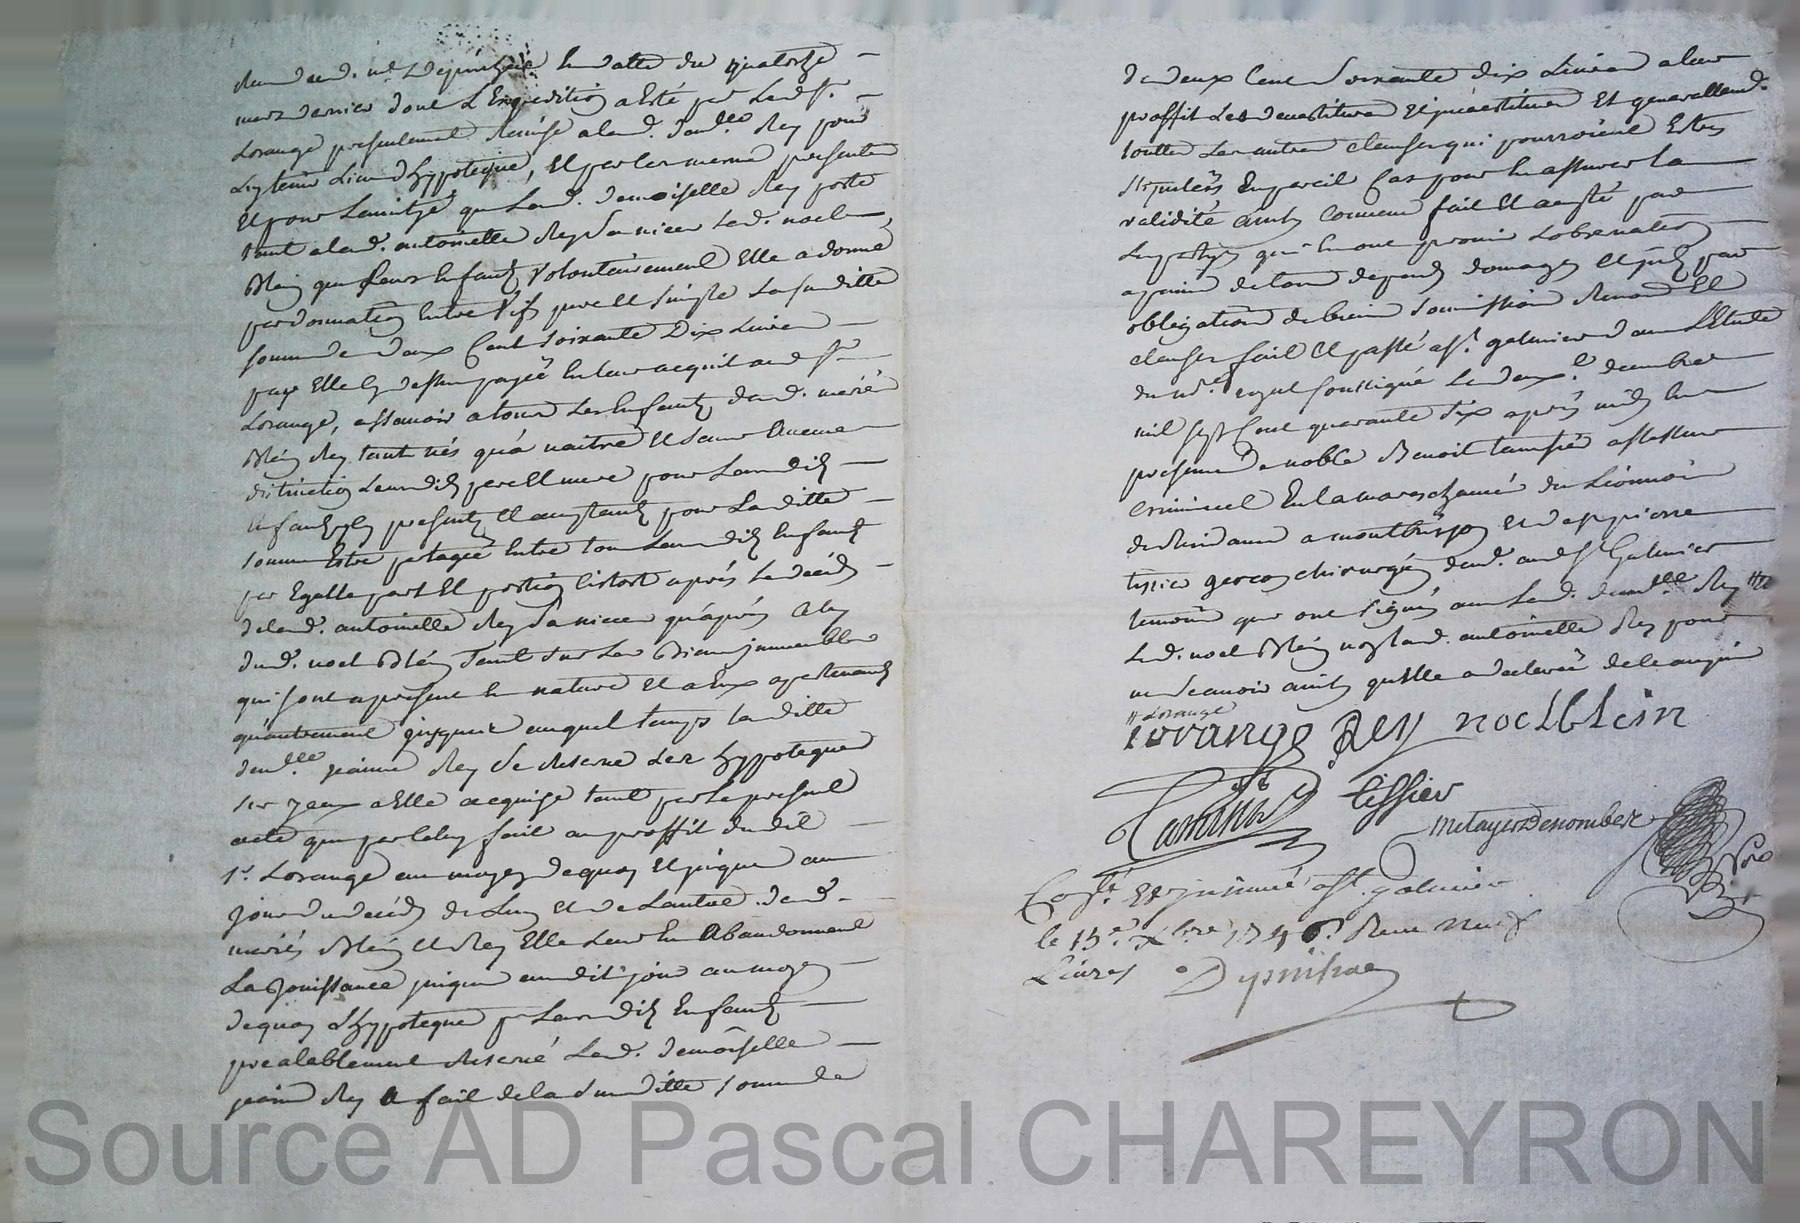 en datte du quatorze
mars dernier dont L'Expedition a Esté par Led. Sr.
Lorange presentement remise alad. dandlle Rey pour
Luy tenir Lieu d'hypoteque, Et par les meme presente
Et pour Lamitié que Lad. demoiselle Rey porte
tant alad. antoinette Rey sa niece Led. noel
Blein que Leurs Enfants volontairement Elle a donné
par donnation Entre vifs pure Et simple La susditte
somme de deux Cent soixante Dix Livres
par Elle cy dessus payée en leur acquit aud. Sr.
Lorange, assavoir a tous Les Enfants desd. mariés
Blein Rey tant nés qu'a naitre Et sans Aucune
distinction Lesdits pere Et mere pour Lesdits
Enfants icy presents Et acceptants pour La ditte
somme Estre partagée Entre tous Lesdits Enfants
par Egalle part Et portion sistost aprés Le décéds
delad. antoinette Rey sa niece qu'aprés celuy
dud. noel Blein tant sur Les Biens immeubles
qui sont a present en nature Et a Eux apartenants
qu'autrement jusques auquel temps La ditte
demlle jeanne Rey se reserve Les hypoteques
sur yceux a Elle acquise tant par Le present
acte que par Celuy fait au proffit dudit
Sr. Lorange au moyen de quoy Et jusque au
jour du décéds de Lun Et de Lautre desd.
mariés Blein Et Rey Elle Leur En Abandonne
La Jouissance jusque audit jour au moyen
dequoy L'hypoteque pr Lesdits Enfants
prealablement reservé Lad. demoiselle
jeanne Rey A fait de la susditte somme
de deux Cent soixante dix Livres a leur
proffit Les devestitures Et investitures Et generallement
toutte Les autres clauses qui pourroient Estre
stipulées En pareil Cas pour En assurer La
validité ainsy Convenu fait Et accepté par
Les partyes qui En ont promis Lobservation
a peine de tous depends domages Et jnts par
obligation de biens soumission Renond. Et
clauses fait Et passé a St. galmier dans L'Etude
du nre. royal soussigné Le deux xe. decembre
mil sept Cent quarante six aprés midy En
presence de noble Benoit assesseur
Criminel En la mareschaussée du Lionnois
de Residence a montbrison Et de sr pierre
tissier garcon chirurgien demt. aud. St. Galmier
temoins qui ont signés avec Lad. demlle Rey #
Led. noel Blein non Lad. antoinette Rey pour
ne scavoir ainsy qu'Elle a declaré de ce enquise
# Lorange
Lorange Rey noel blein
tissier
metayer
Collé. Et jnsinué a St. galmier
le 15e. Xbre 1746. Receu neuf
Livres
Source AD Pascal CHAREYRON